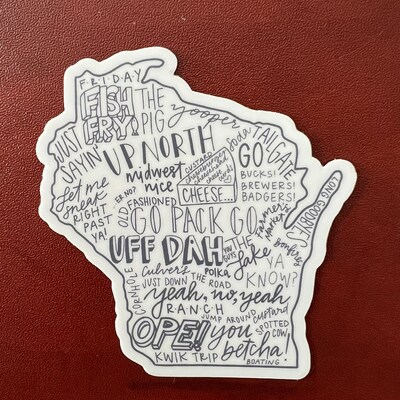 FRIDAY
FISH
FRY
THE
PIG
yooper
JUST
SAYIN'
UP NORTH
Soda
TAILGATE
midwest
nice
CUSTARD
cheese curds
CHEESE...
GO
BUCKS!
BREWERS!
BADGERS!
LONG GOODBYES
Let me
sneak
RIGHT
PAST
YA!
ER NO?
OLD
FASHIONED
GO PACK GO
Farmers
Market
bonfires
UFF DAH
YOU
GUYS
THE
Lake
YA
KNOW?
CORNHOLE
Culver's
POLKA
JUST DOWN THE ROAD
yeah, no, yeah
RANCH
JUMP AROUND
custard
SPOTTED
COW
OPE!
you
betcha!
KWIK TRIP
BOATING